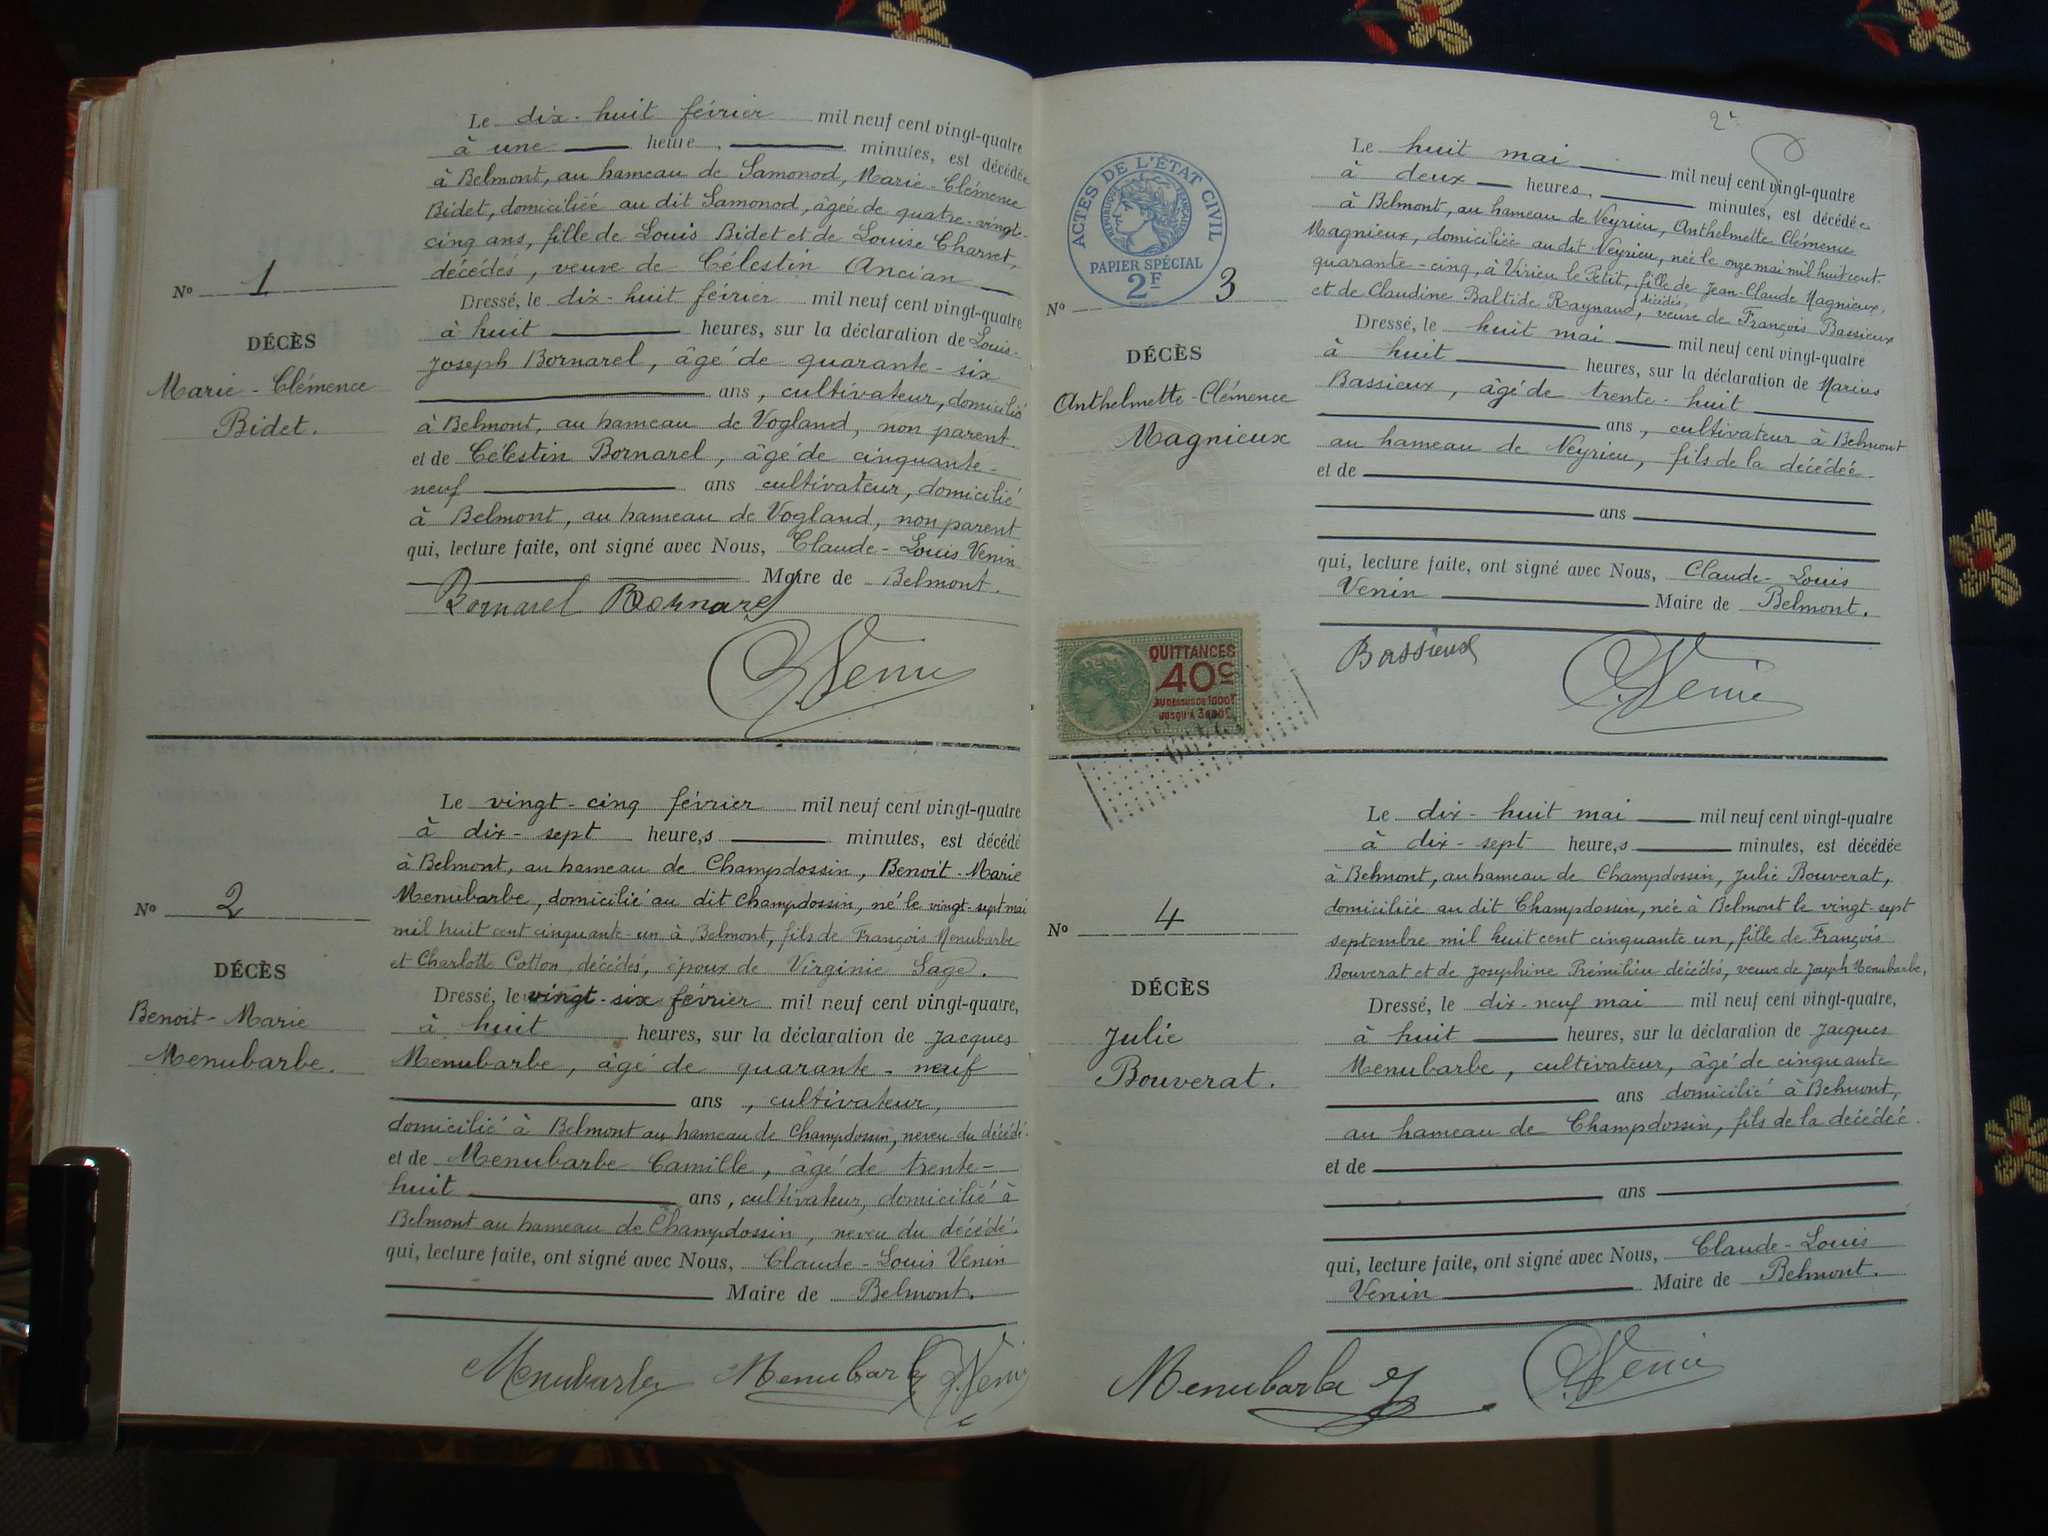 Le dix-huit février mil neuf cent vingt-quatre
à une heure, minutes, est décédée
à Belmont, au hameau de Samonod, Marie-Clémence
Bidet, domiciliée au dit Samonod, âgée de quatre-vingt-
cinq ans, fille de Louis Bidet et de Louise Charvet,
décédés, veuve de Célestin Ancian
Nº 1
Dressé, le dix-huit février mil neuf cent vingt-quatre
à huit heures, sur la déclaration de Louis-
DÉCÈS
Joseph Bornarel, âgé de quarante-six
Marie-Clémence
ans, cultivateur, domicilié
Bidet.
à Belmont, au hameau de Vogland, non parent
et de Célestin Bornarel, âgé de cinquante-
neuf ans cultivateur, domicilié
à Belmont, au hameau de Vogland, non parent
qui, lecture faite, ont signé avec Nous, Claude-Louis Venin
Maire de Belmont.
Bornarel Bornarel
C. Venin
Le vingt-cinq février mil neuf cent vingt-quatre
à dix-sept heure,s minutes, est décédé
à Belmont, au hameau de Champdossin, Benoit-Marie
Menubarbe, domicilié au dit Champdossin, né le vingt-sept mai
Nº 2
mil huit cent cinquante-un à Belmont, fils de François Menubarbe
et Charlotte Cotton, décédés, époux de Virginie Sage.
DÉCÈS
Dressé, le vingt-six février mil neuf cent vingt-quatre,
Benoit-Marie
à huit heures, sur la déclaration de Jacques
Menubarbe.
Menubarbe, âgé de quarante-neuf
ans, cultivateur,
domicilié à Belmont au hameau de Champdossin, neveu du décédé.
et de Menubarbe Camille, âgé de trente-
huit ans, cultivateur, domicilié à
Belmont au hameau de Champdossin, neveu du décédé.
qui, lecture faite, ont signé avec Nous, Claude-Louis Venin
Maire de Belmont.
Menubarbe Menubarbe C. Venin
2
ACTES DE L'ÉTAT CIVIL
RÉPUBLIQUE FRANÇAISE
PAPIER SPÉCIAL
2F
Le huit mai mil neuf cent vingt-quatre
à deux heures, minutes, est décédée
à Belmont, au hameau de Veyrieu, Anthelmette Clémence
Magnieux, domiciliée au dit Veyrieu, née le onze mai mil huit cent
quarante-cinq, à Virieu le Petit, fille de Jean-Claude Magnieux,
et de Claudine Baltide Raynaud, décédés, veuve de François Bassieux
Nº 3
Dressé, le huit mai mil neuf cent vingt-quatre
DÉCÈS
à huit heures, sur la déclaration de Marius
Anthelmette-Clémence
Bassieux, âgé de trente-huit
Magnieux
ans, cultivateur à Belmont
au hameau de Veyrieu, fils de la décédée.
et de
ans
qui, lecture faite, ont signé avec Nous, Claude-Louis
Venin Maire de Belmont.
Bassieux C. Venin
QUITTANCES
40c
AU DESSUS DE 1000F
JUSQU'À 3000F
Le dix-huit mai mil neuf cent vingt-quatre
à dix-sept heure,s minutes, est décédée
à Belmont, au hameau de Champdossin, Julie Bouverat,
domiciliée au dit Champdossin, née à Belmont le vingt-sept
Nº 4
septembre mil huit cent cinquante un, fille de François
Bouverat et de Josephine Prémilieu décédés, veuve de Joseph Menubarbe,
DÉCÈS
Dressé, le dix-neuf mai mil neuf cent vingt-quatre,
Julie
à huit heures, sur la déclaration de Jacques
Bouverat.
Menubarbe, cultivateur, âgé de cinquante
ans domicilié à Belmont,
au hameau de Champdossin, fils de la décédée.
et de
ans
qui, lecture faite, ont signé avec Nous, Claude-Louis
Venin Maire de Belmont.
Menubarbe J C. Venin